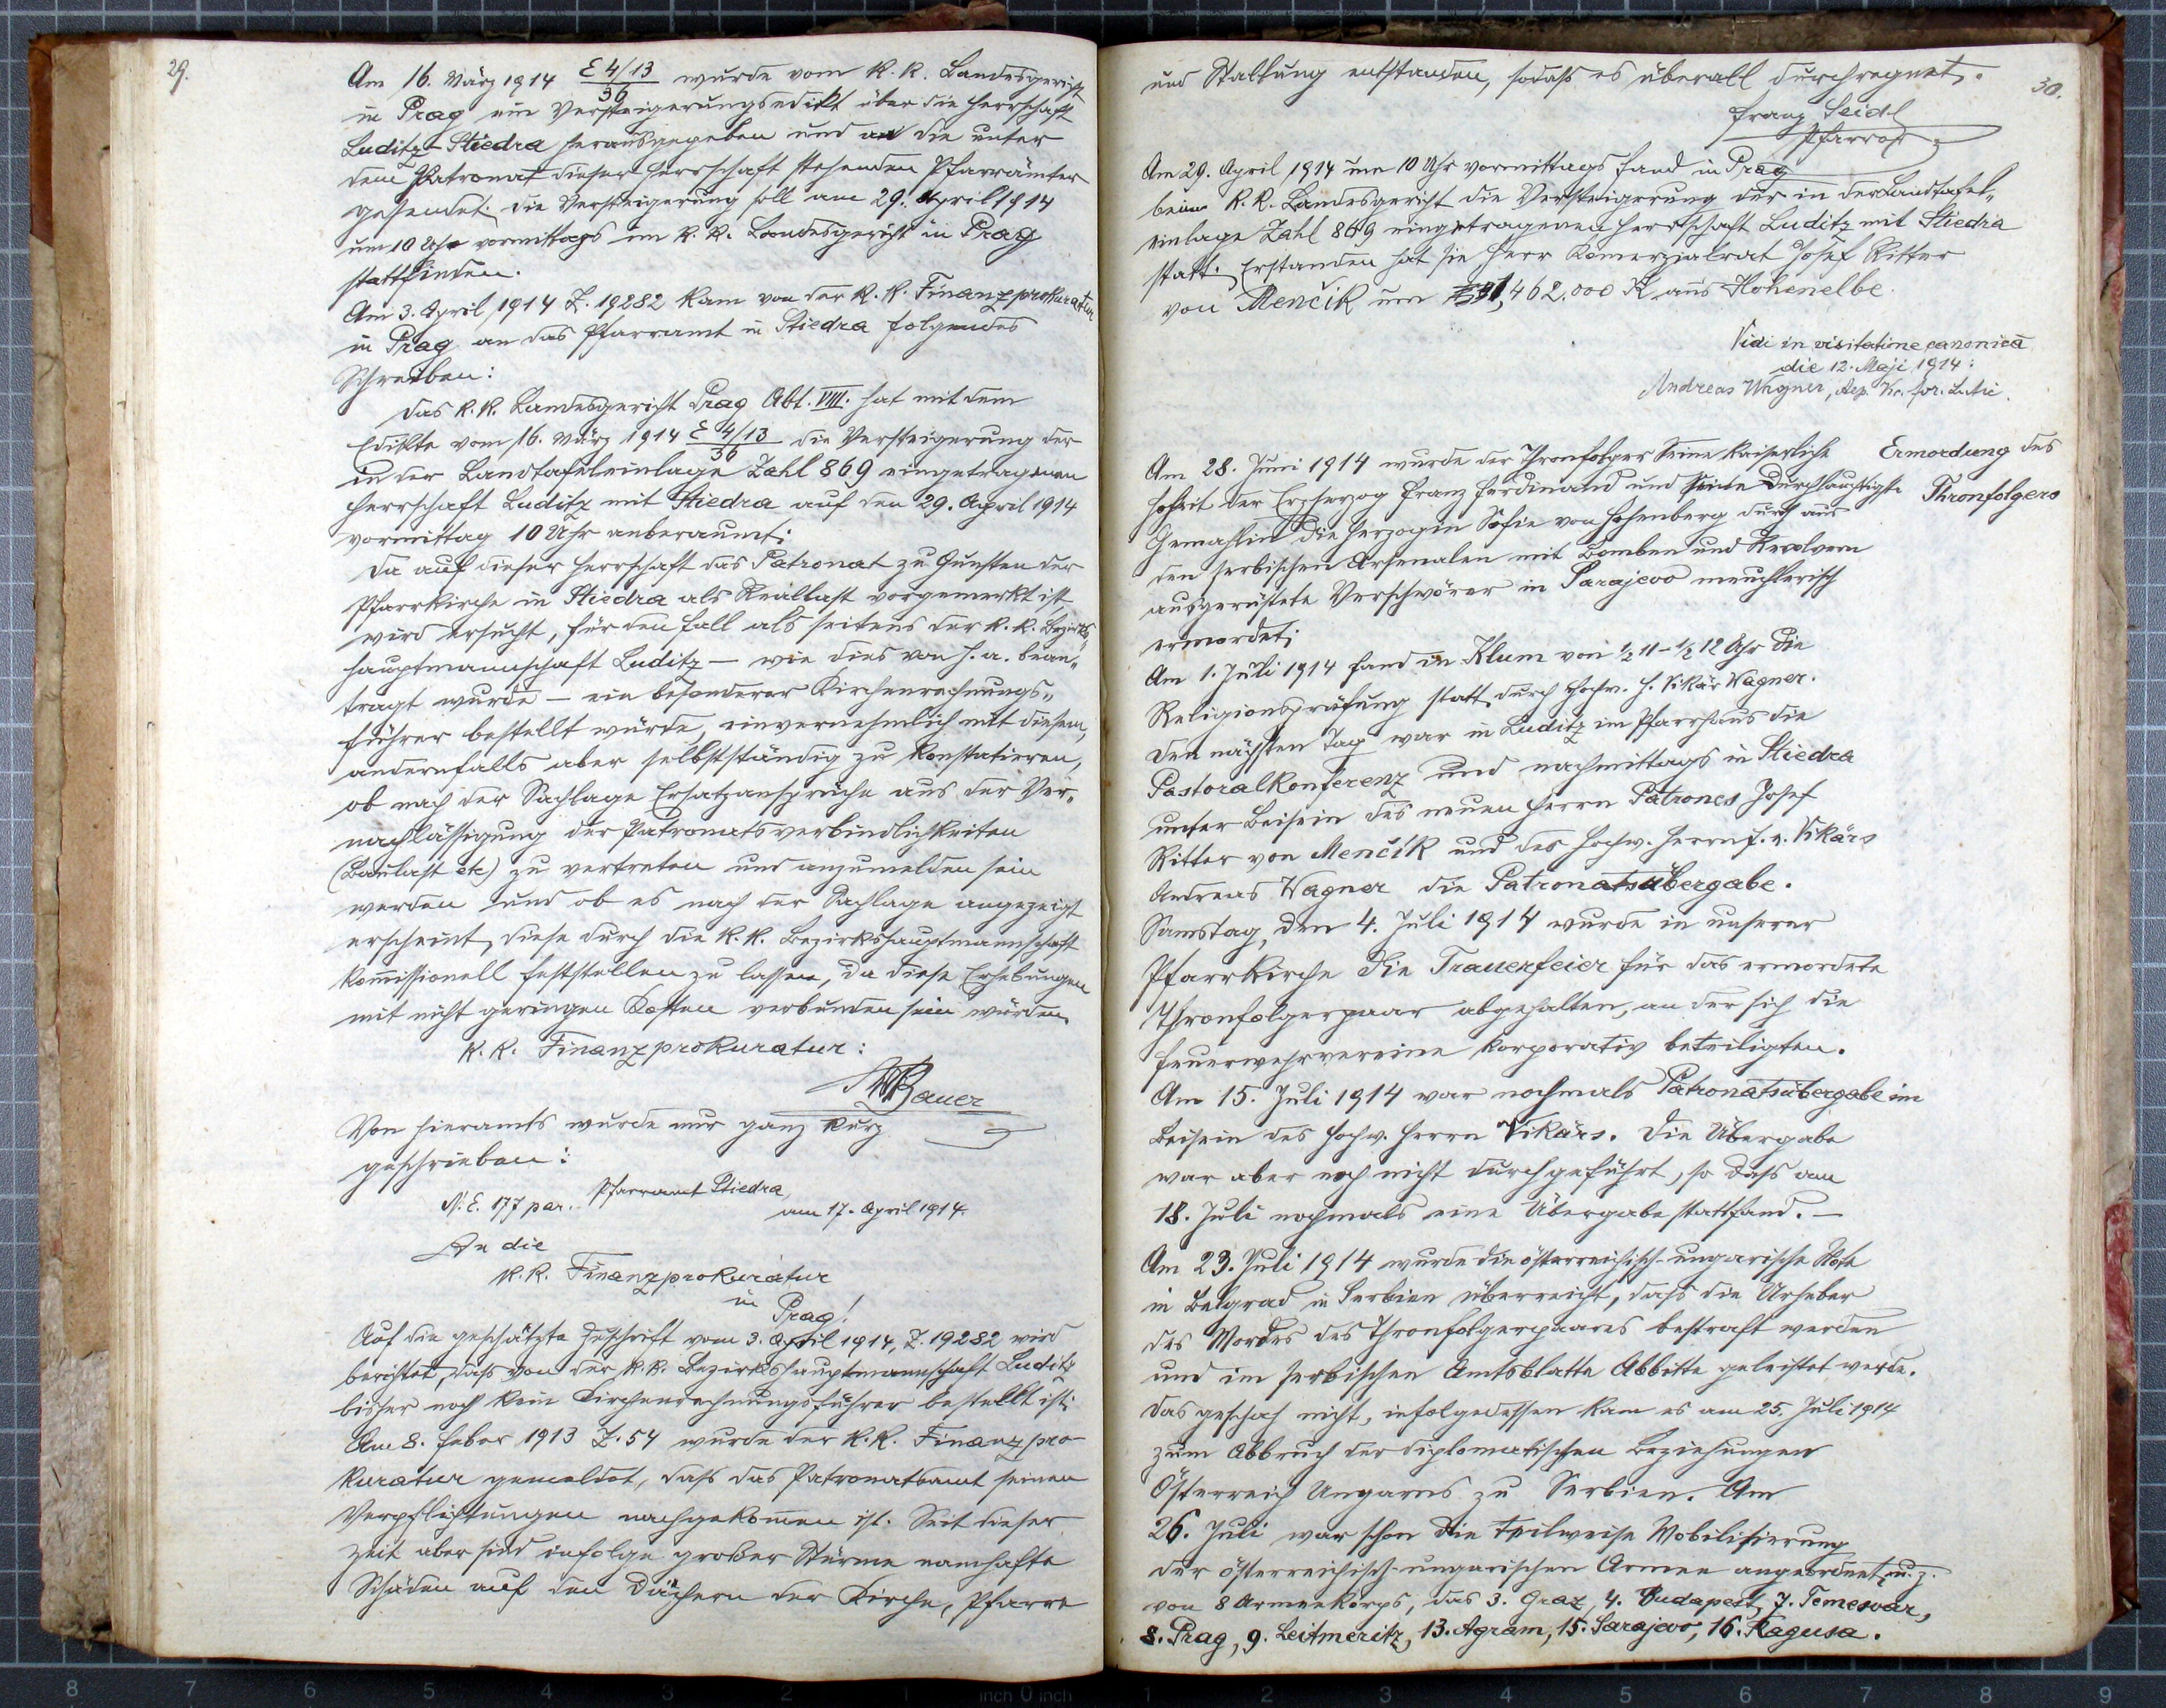 29.
Am 16. März 1914 E 4/13/36 wurde vom k. k. Landesgericht
in Prag ein Versteigerungsedikt über die Herrschaft
Luditz-Stiedra herausgegeben und an die unter
dem Patronat dieser Herrschaft stehenden Pfarrämter
gesendet. Die Versteigerung soll am 29. April 1914
um 10 Uhr vormittags im k. k. Landesgericht in Prag
stattfinden.
Am 3. April 1914 Z. 19282 kam von der k. k. Finanzprokuratur
in Prag an das Pfarramt in Stiedra folgendes
Schreiben:
Das k. k. Landesgericht Prag Abt. VIII. hat mit dem
Edikte vom 16. März 1914 E 4/13/36 die Versteigerung der
in der Landtafeleinlage Zahl 869 eingetragenen
Herrschaft Luditz mit Stiedra auf den 29. April 1914
vormittag 10 Uhr anberaumt.
Da auf dieser Herrschaft das Patronat zu Gunsten der
Pfarrkirche in Stiedra als Reallast vorgemerkt ist,
wird ersucht, für den Fall als seitens der k. k. Bezirks-
hauptmannschaft Luditz – wie dies von h. a. bean„
tragt wurde – ein besonderer Kirchenrechnungs„
führer bestellt würde, einvernehmlich mit diesem,
andernfalls aber selbstständig zu konstatieren,
ob nach der Sachlage Ersatzansprüche aus der Ver„
nachlässigung der Patronatsverbindlichkeiten
(Baulast etc) zu vertreten und anzumelden sein
werden und ob es nach der Sachlage angezeigt
erscheint, diese durch die k. k. Bezirkshauptmannschaft
kommissionell feststellen zu lassen, da diese Erhebungen
mit nicht geringen Kosten verbunden sein würden.
K. k. Finanzprokuratur:
Bauer
Von hieramts wurde nur ganz kurz
geschrieben:
N. E. 177 par. Pfarramt Stiedra,
am 17. April 1914.
An die
k. k. Finanzprokuratur
in Prag!
Auf die geschätzte Zuschrift vom 3. April 1914, Z. 19282 wird
berichtet, daß von der k. k. Bezirkshauptmannschaft Luditz
bisher noch kein Kirchenrechnungsführer bestellt ist.
Am 8. Feber 1913 Z. 54 wurde der k. k. Finanzpro
kuratur gemeldet, daß das Patronatsamt seinen
Verpflichtungen nachgekommen ist. Seit dieser
Zeit aber sind infolge großer Stürme namhafte
Schäden auf den Dächern der Kirche, Pfarre
30.
und Stallung entstanden, sodaß es überall durchregnet.
Franz Seidl
Pfarrer
Am 29. April 1914 um 10 Uhr vormittags fand in Prag
beim k. k. Landesgericht die Versteigerung der in der Landtafel„
einlage Zahl 869 eingetragenen Herrschaft Luditz mit Stiedra
statt. Erstanden hat sie Herr Komerzialrat Josef Ritter
von Menčik um 1,462.000 K aus Hohenelbe.
Vidi in visitatione canonica
die 12. Maji 1914:
Andreas Wagner,
Am 28. Juni 1914 wurde der Thronfolger Seine kaiserliche
Ermordung des
Hoheit der Erzherzog Franz Ferdinand und seine durchlauchtigste
Thronfolgers
Gemahlin die Herzogin Sofie von Hohenberg durch aus
den serbischen Arsenalen mit Bomben und Revolvern
ausgerüstete Verschwörer in Sarajevo meuchlerisch
ermordet.
Am 1. Juli 1914 fand in Klum von ½ 11 – ½ 12 Uhr die
Religionsprüfung statt durch Hochw. H. Vikär Wagner.
Den nächsten Tag war in Luditz im Pfarrhaus die
Pastoralkonferenz und nachmittags in Stiedra
unter Beisein des neuen Herrn Patrones Josef
Ritter von Menčik und des Hochw. Herrn f. e. Vikärs
Andreas Wagner die Patronatsübergabe.
Samstag, den 4. Juli 1914 wurde in unserer
Pfarrkirche die Trauerfeier für das ermordete
Thronfolgerpaar abgehalten, an der sich die
Feuerwehrvereine korporativ beteiligten.
Am 15. Juli 1914 war nochmals Patronatsübergabe im
Beisein des Hochw. Herrn Vikärs. Die Übergabe
war aber noch nicht durchgeführt, so daß am
18. Juli nochmals eine Übergabe stattfand. –
Am 23. Juli 1914 wurde die österreichisch-ungarische Note
in Belgrad in Serbien überreicht, daß die Urheber
des Mordes des Thronfolgerpaares bestraft werden
und im serbischen Amtsblatte Abbitte geleistet werde.
Das geschah nicht, infolgedessen kam es am 25. Juli 1914
zum Abbruch der diplomatischen Beziehungen
Österreich Ungarns zu Serbien. Am
26. Juli war schon die teilweise Mobilisierung
der österreichisch-ungarischen Armee angeordnet, u. z.
von 8 Armeekorps, das 3. Graz, 4. Budapest, 7. Temesvar,
8. Prag, 9. Leitmeritz, 13. Agram, 15. Sarajevo, 16. Ragusa.
8 7 6 5 4 3 2 1 inch 0 inch 1 2 3 4 5 6 7 8 9